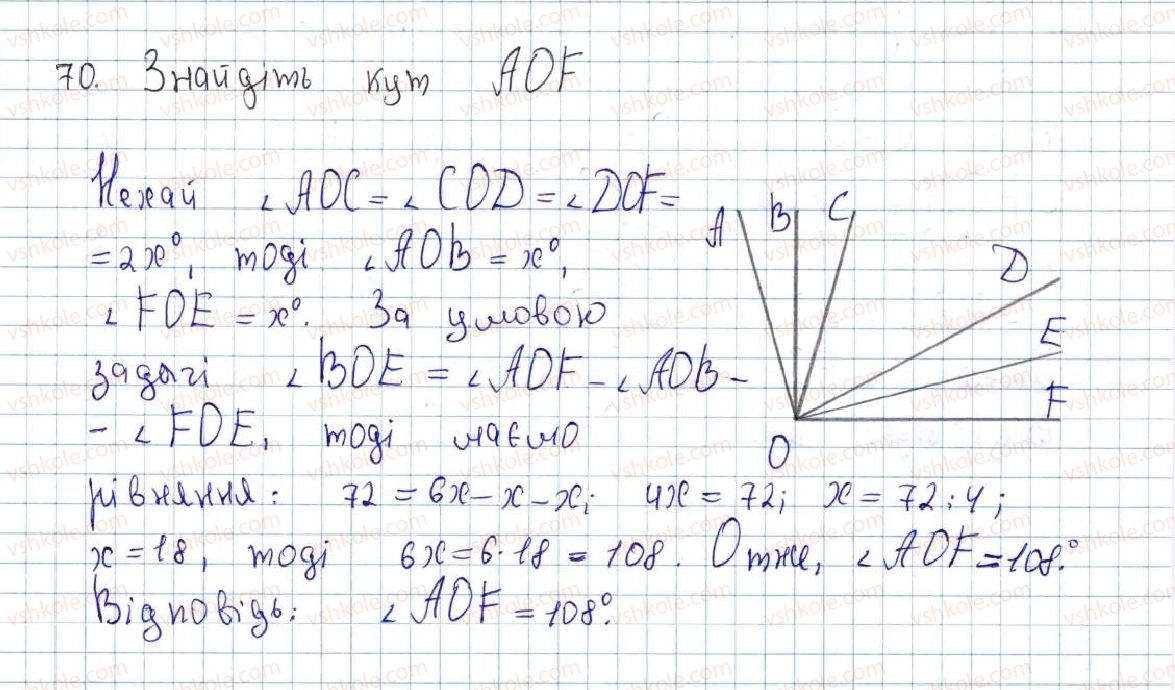 70. Знайдіть кут AOF
Нехай ∠AOC = ∠COD = ∠DOF =
= 2x°, тоді ∠AOB = x°,
∠FOE = x°. За умовою
задачі ∠BOE = ∠AOF - ∠AOB -
- ∠FOE, тоді маємо
рівняння: 72 = 6x - x - x; 4x = 72; x = 72 : 4;
x = 18, тоді 6x = 6 · 18 = 108. Отже, ∠AOF = 108°.
Відповідь: ∠AOF = 108°.
A B C
D
E
F
O
vshkole.com